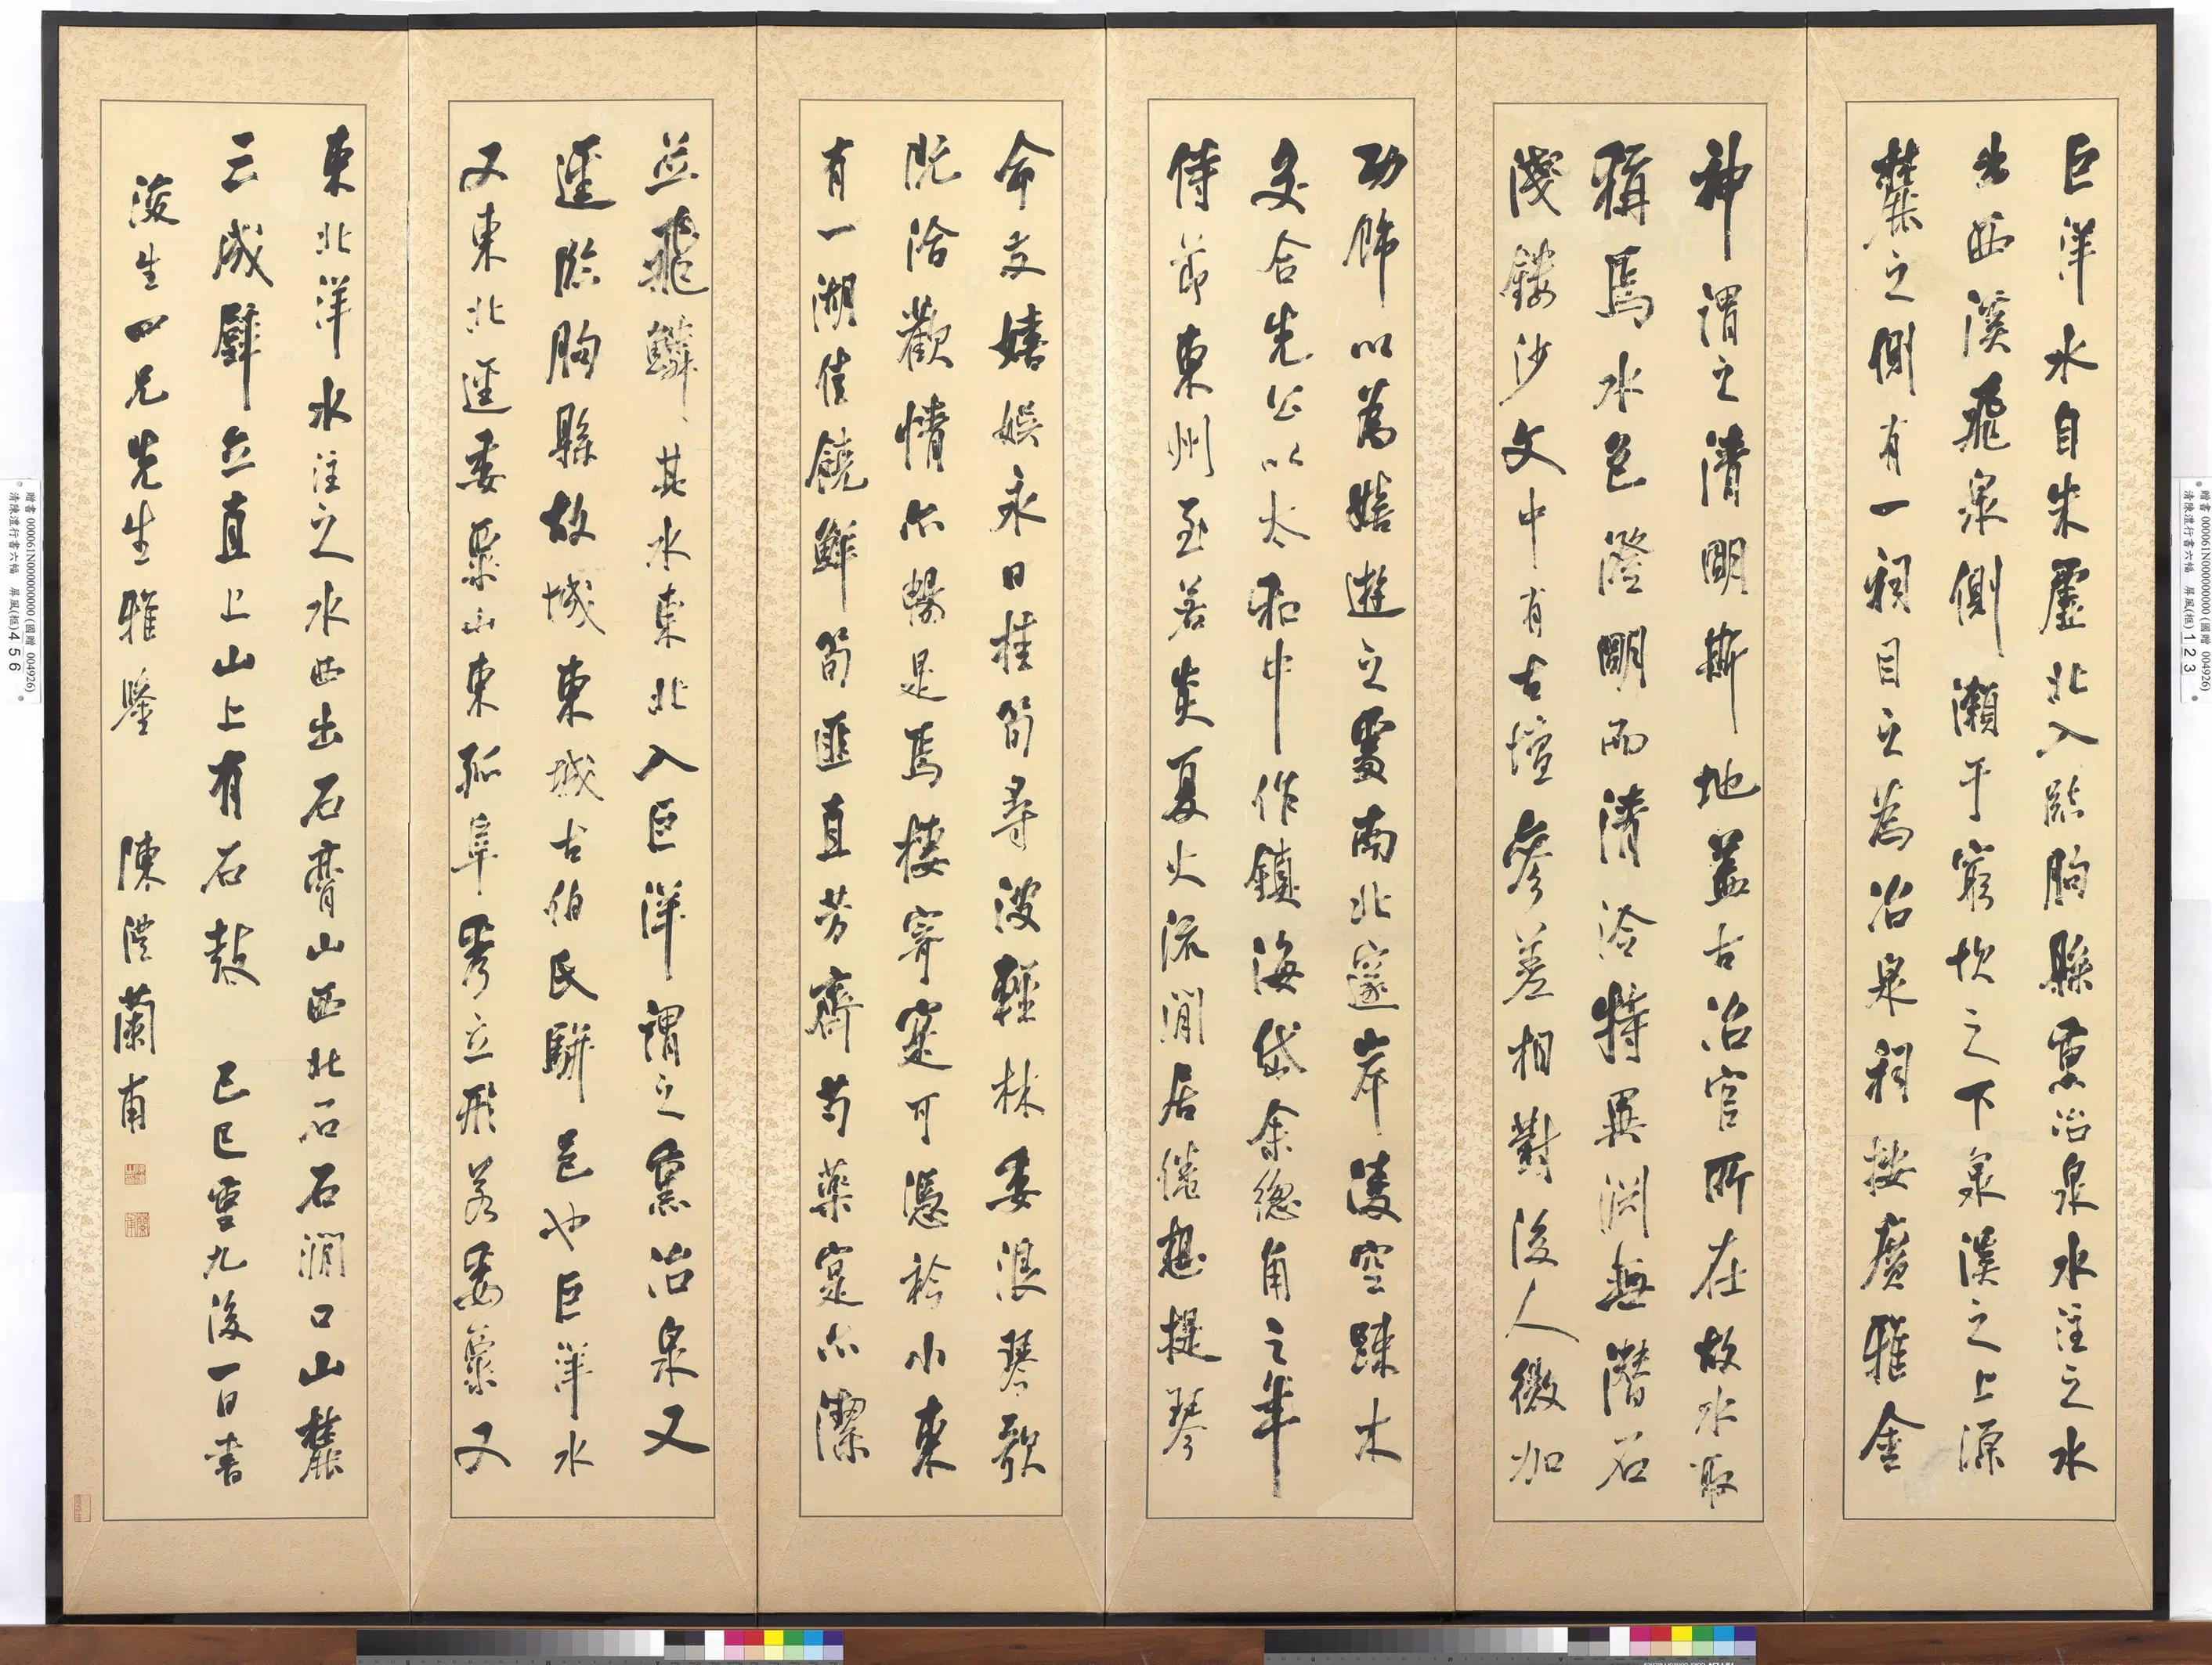 巨洋水自朱虛北入臨朐縣熏冶泉水注之水
出西溪飛泉側瀨于窮坎之下泉溪之上源
麓之側有一祠目之為冶泉祠按廣雅金
神謂之清明斯地蓋古冶官所在故水取
稱焉水色澄明而清泠特異淵無潛石
淺鏤沙文中有古壇參差相對後人微加
功飾以為嬉遊之處南北邃岸淩空疎木
交合先公以太和中作鎮海岱余總角之年
侍節東州至若炎夏火流閒居倦想提琴
命友嬉娛永日桂筍尋波輕林委浪琴歌
既洽歡情亦暢是焉棲寄寔可憑衿小東
有一湖佳饒鮮筍匪直芳齊芍藥寔亦潔
並飛鱗其水東北入巨洋謂之熏冶泉又
逕臨朐縣故城東城古伯氏駢邑也巨洋水
又東北逕委粟山東孤阜秀立形若委粟又
東北洋水注之水西出石膏山西北石石澗口山麓
三成壁立直上山上有石鼓 己巳重九後一日書
浚生四兄先生雅鑒 陳澧蘭甫
贈書 000061N000000000 (國贈 004926)
清陳澧行書六幅 屏風(框)1 2 3
贈書 000061N000000000 (國贈 004926)
清陳澧行書六幅 屏風(框)4 5 6